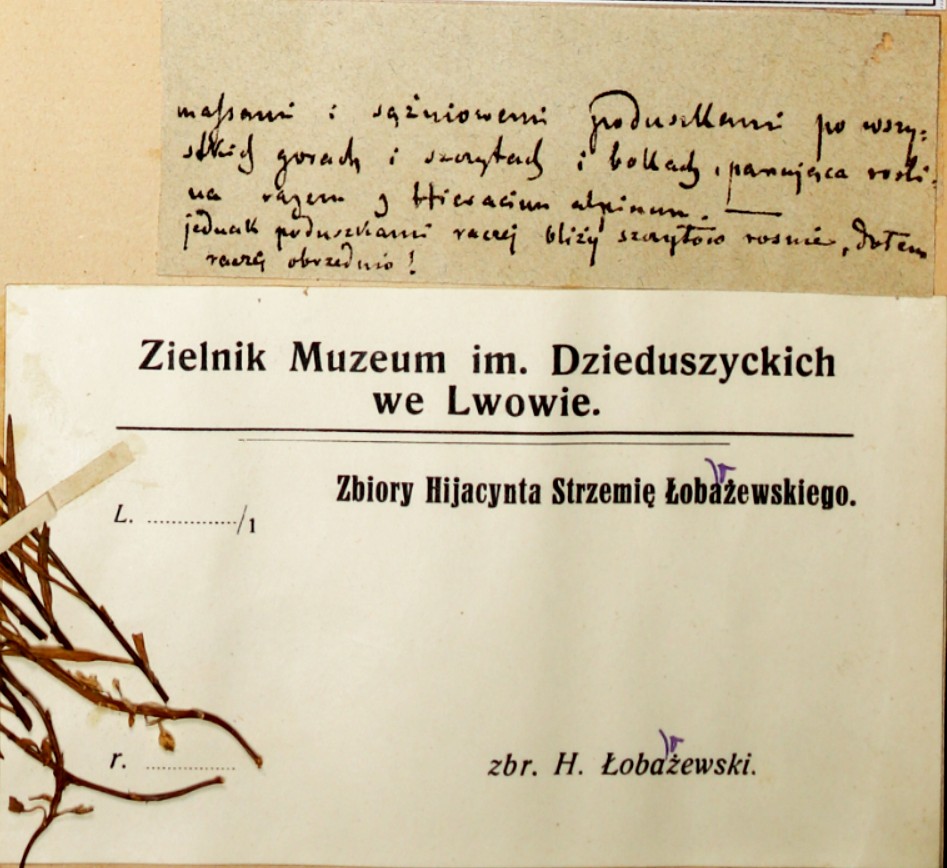 massami i sążniowemi poduszkami po wszy:
stkich gorach i szczytach i bokach, panująca rośli:
na razem z Hieracium alpinum. —
jednak poduszkami raczej bliży szczytów rośnie, dołem
raczej obrzednio!
Zielnik Muzeum im. Dzieduszyckich
we Lwowie.
Zbiory Hijacynta Strzemię Łobażewskiego.
L. ............../1
r. ..............
zbr. H. Łobażewski.